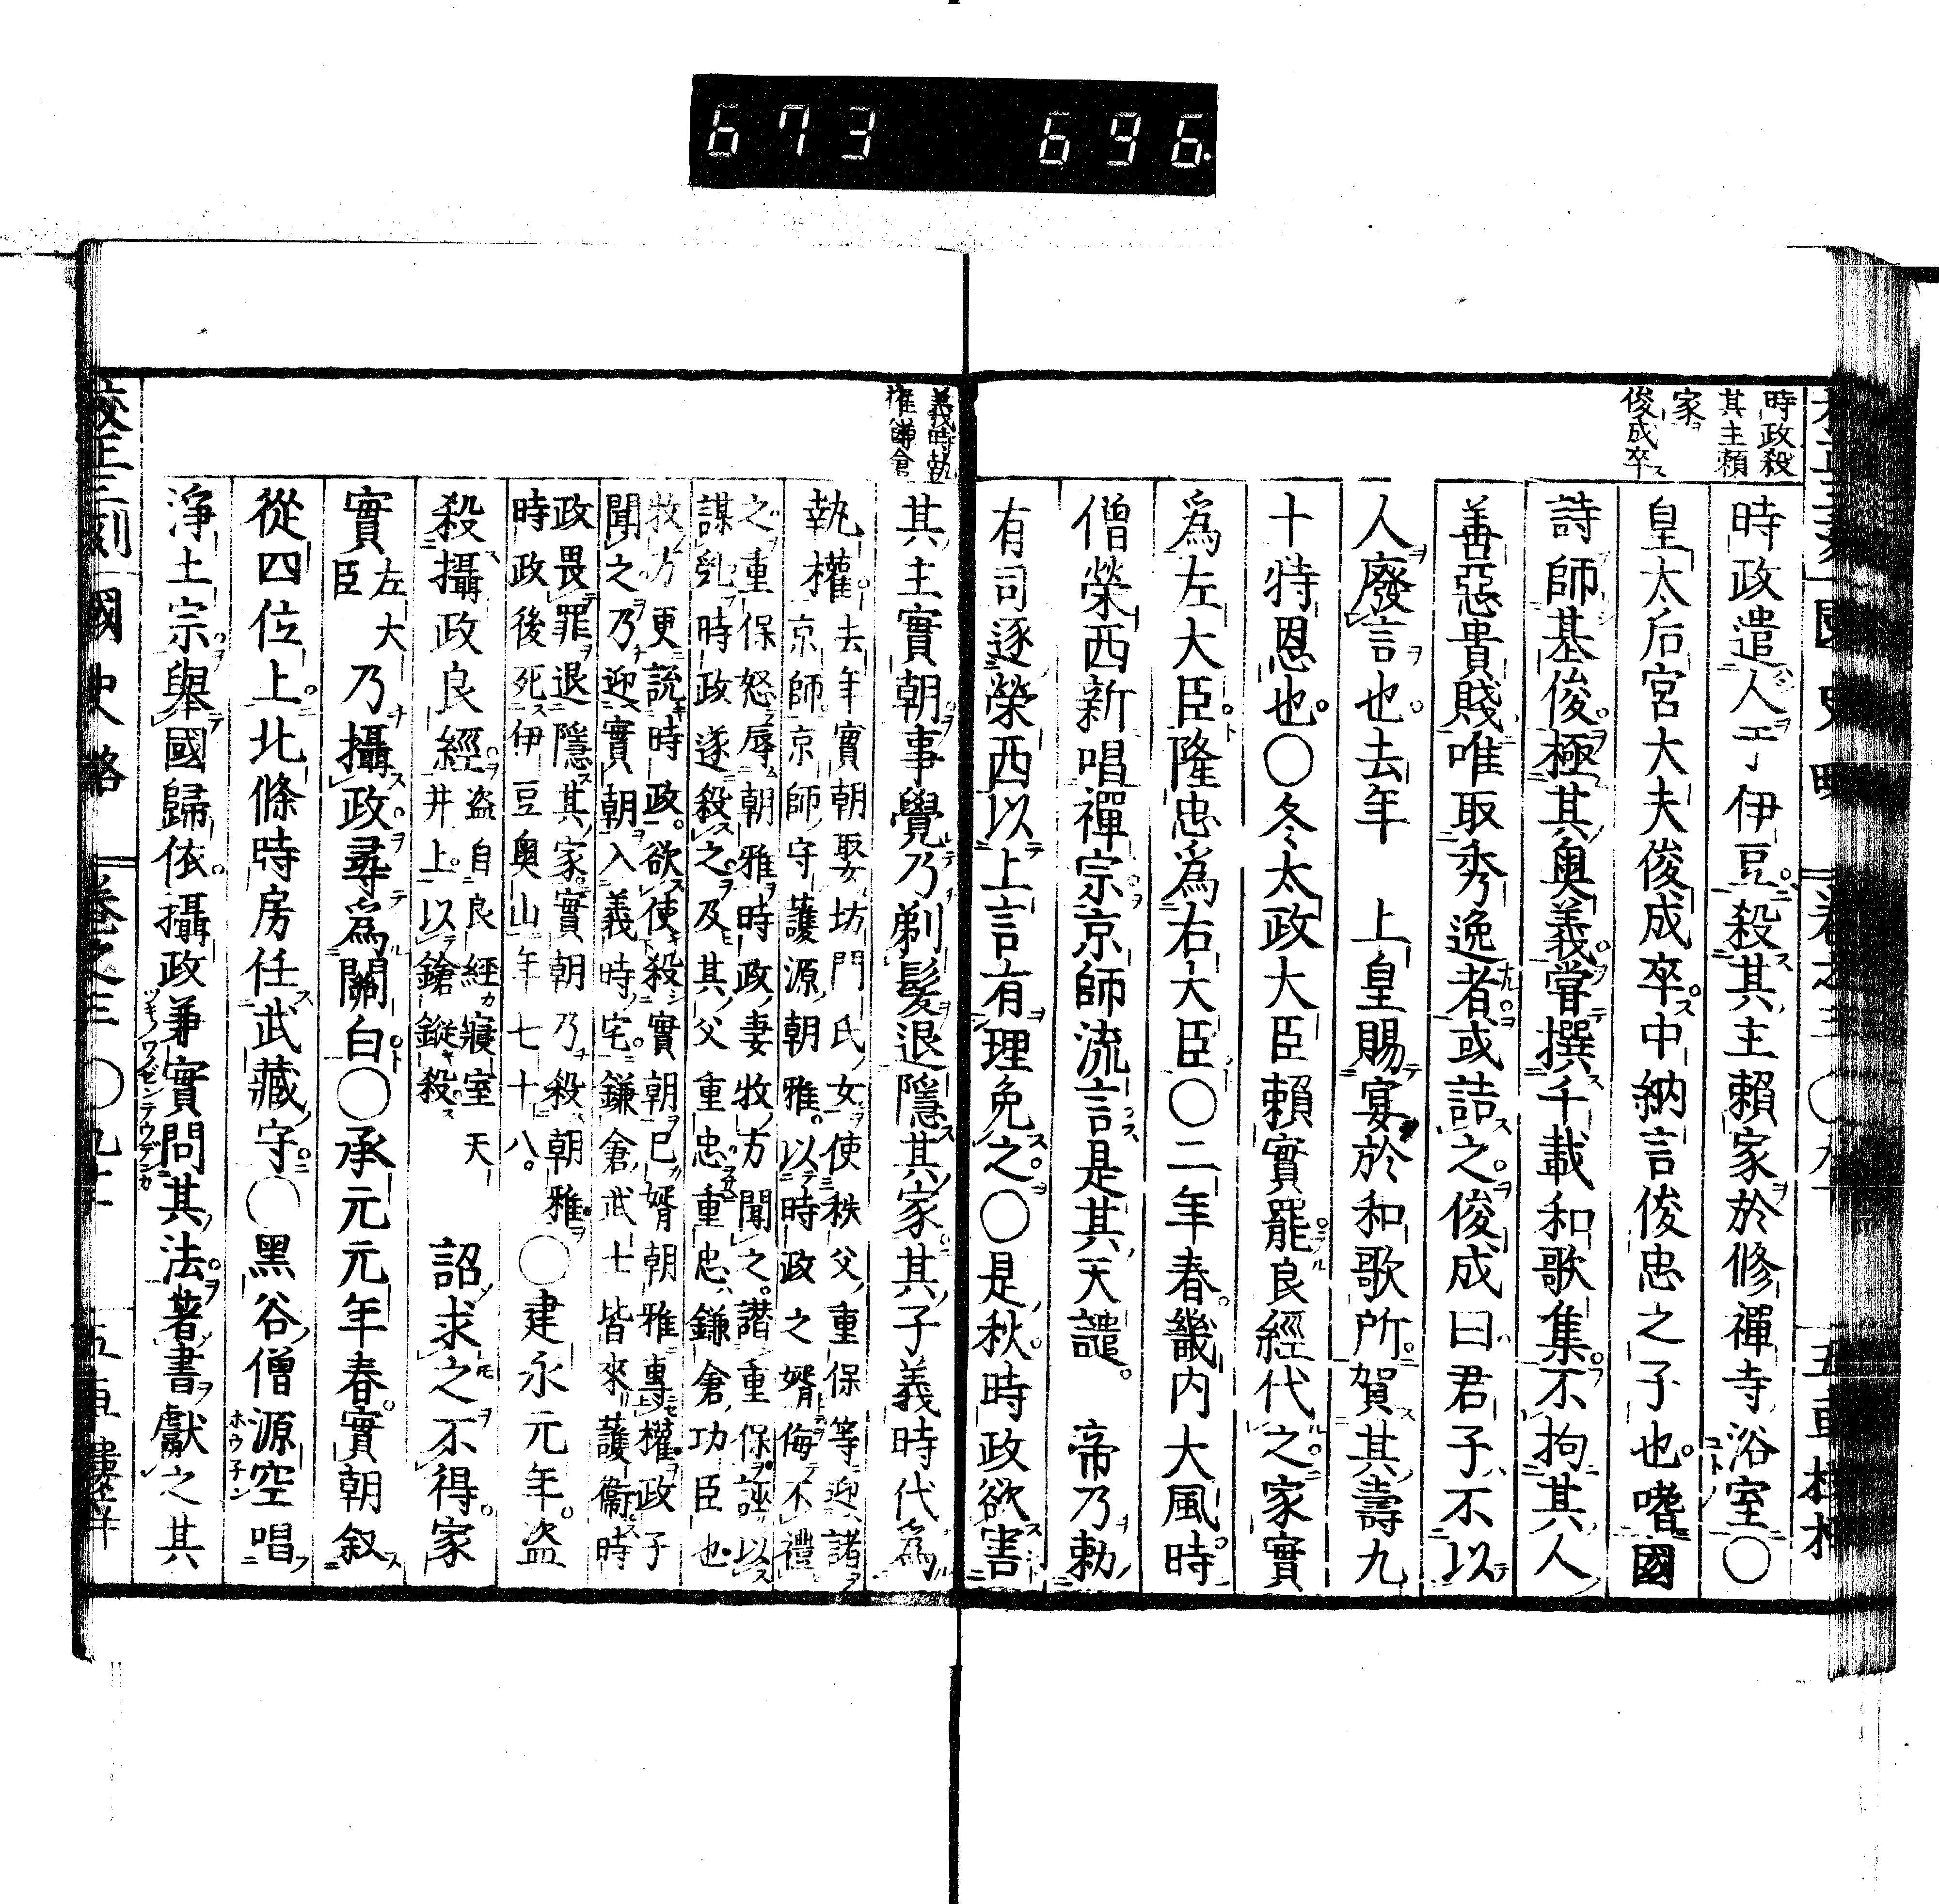 673 696.
時政殺
其主頼
家
俊成卒
時政遣人于伊豆殺其主賴家於修禪寺浴室〇
皇太后宮大夫俊成卒中納言俊忠之子也嗜國
詩師基俊極其奧義甞撰千載和歌集不拘其人
善惡貴賤唯取秀逸者或詰之俊成曰君子不以
人廢言也去年　上皇賜宴於和歌所賀其壽九
十特恩也〇冬太政大臣賴實罷良經代之家實
爲左大臣隆忠爲右大臣〇二年春畿内大風時
僧榮西新唱禪宗京師流言是其天譴。　帝乃勅
有司逐榮西以上言有理免之〇是秋時政欲害
義時執
權鎌倉
其主實朝事覺乃剃髮退隱其家其子義時代爲
執權
去年實朝娶坊門氏女使秩父重保等迎諸
京師京師守護源朝雅以時政之婿侮不禮
之重保怒辱朝雅時政妻牧方聞之譖重保誣以
謀亂時政遂殺之及其父重忠重忠鎌倉功臣也
牧方更說時政欲使殺實朝已婿朝雅專權政子
聞之乃迎實朝入義時宅鎌倉武士皆來護衞時
政畏罪退隱其家實朝乃殺朝雅
時政後死伊豆奧山年七十八。
〇建永元年。盜
殺攝政良經
盜自良經寢室天
井上以鎗鏦殺
詔求之不得家
實
左大
臣
乃攝政尋爲關白〇承元元年春實朝叙
從四位上北條時房任武藏守〇黑谷僧源空唱
淨土宗舉國歸依攝政兼實問其法著書獻之其
校正三刻國史略　卷之三〇九十　五車樓梓